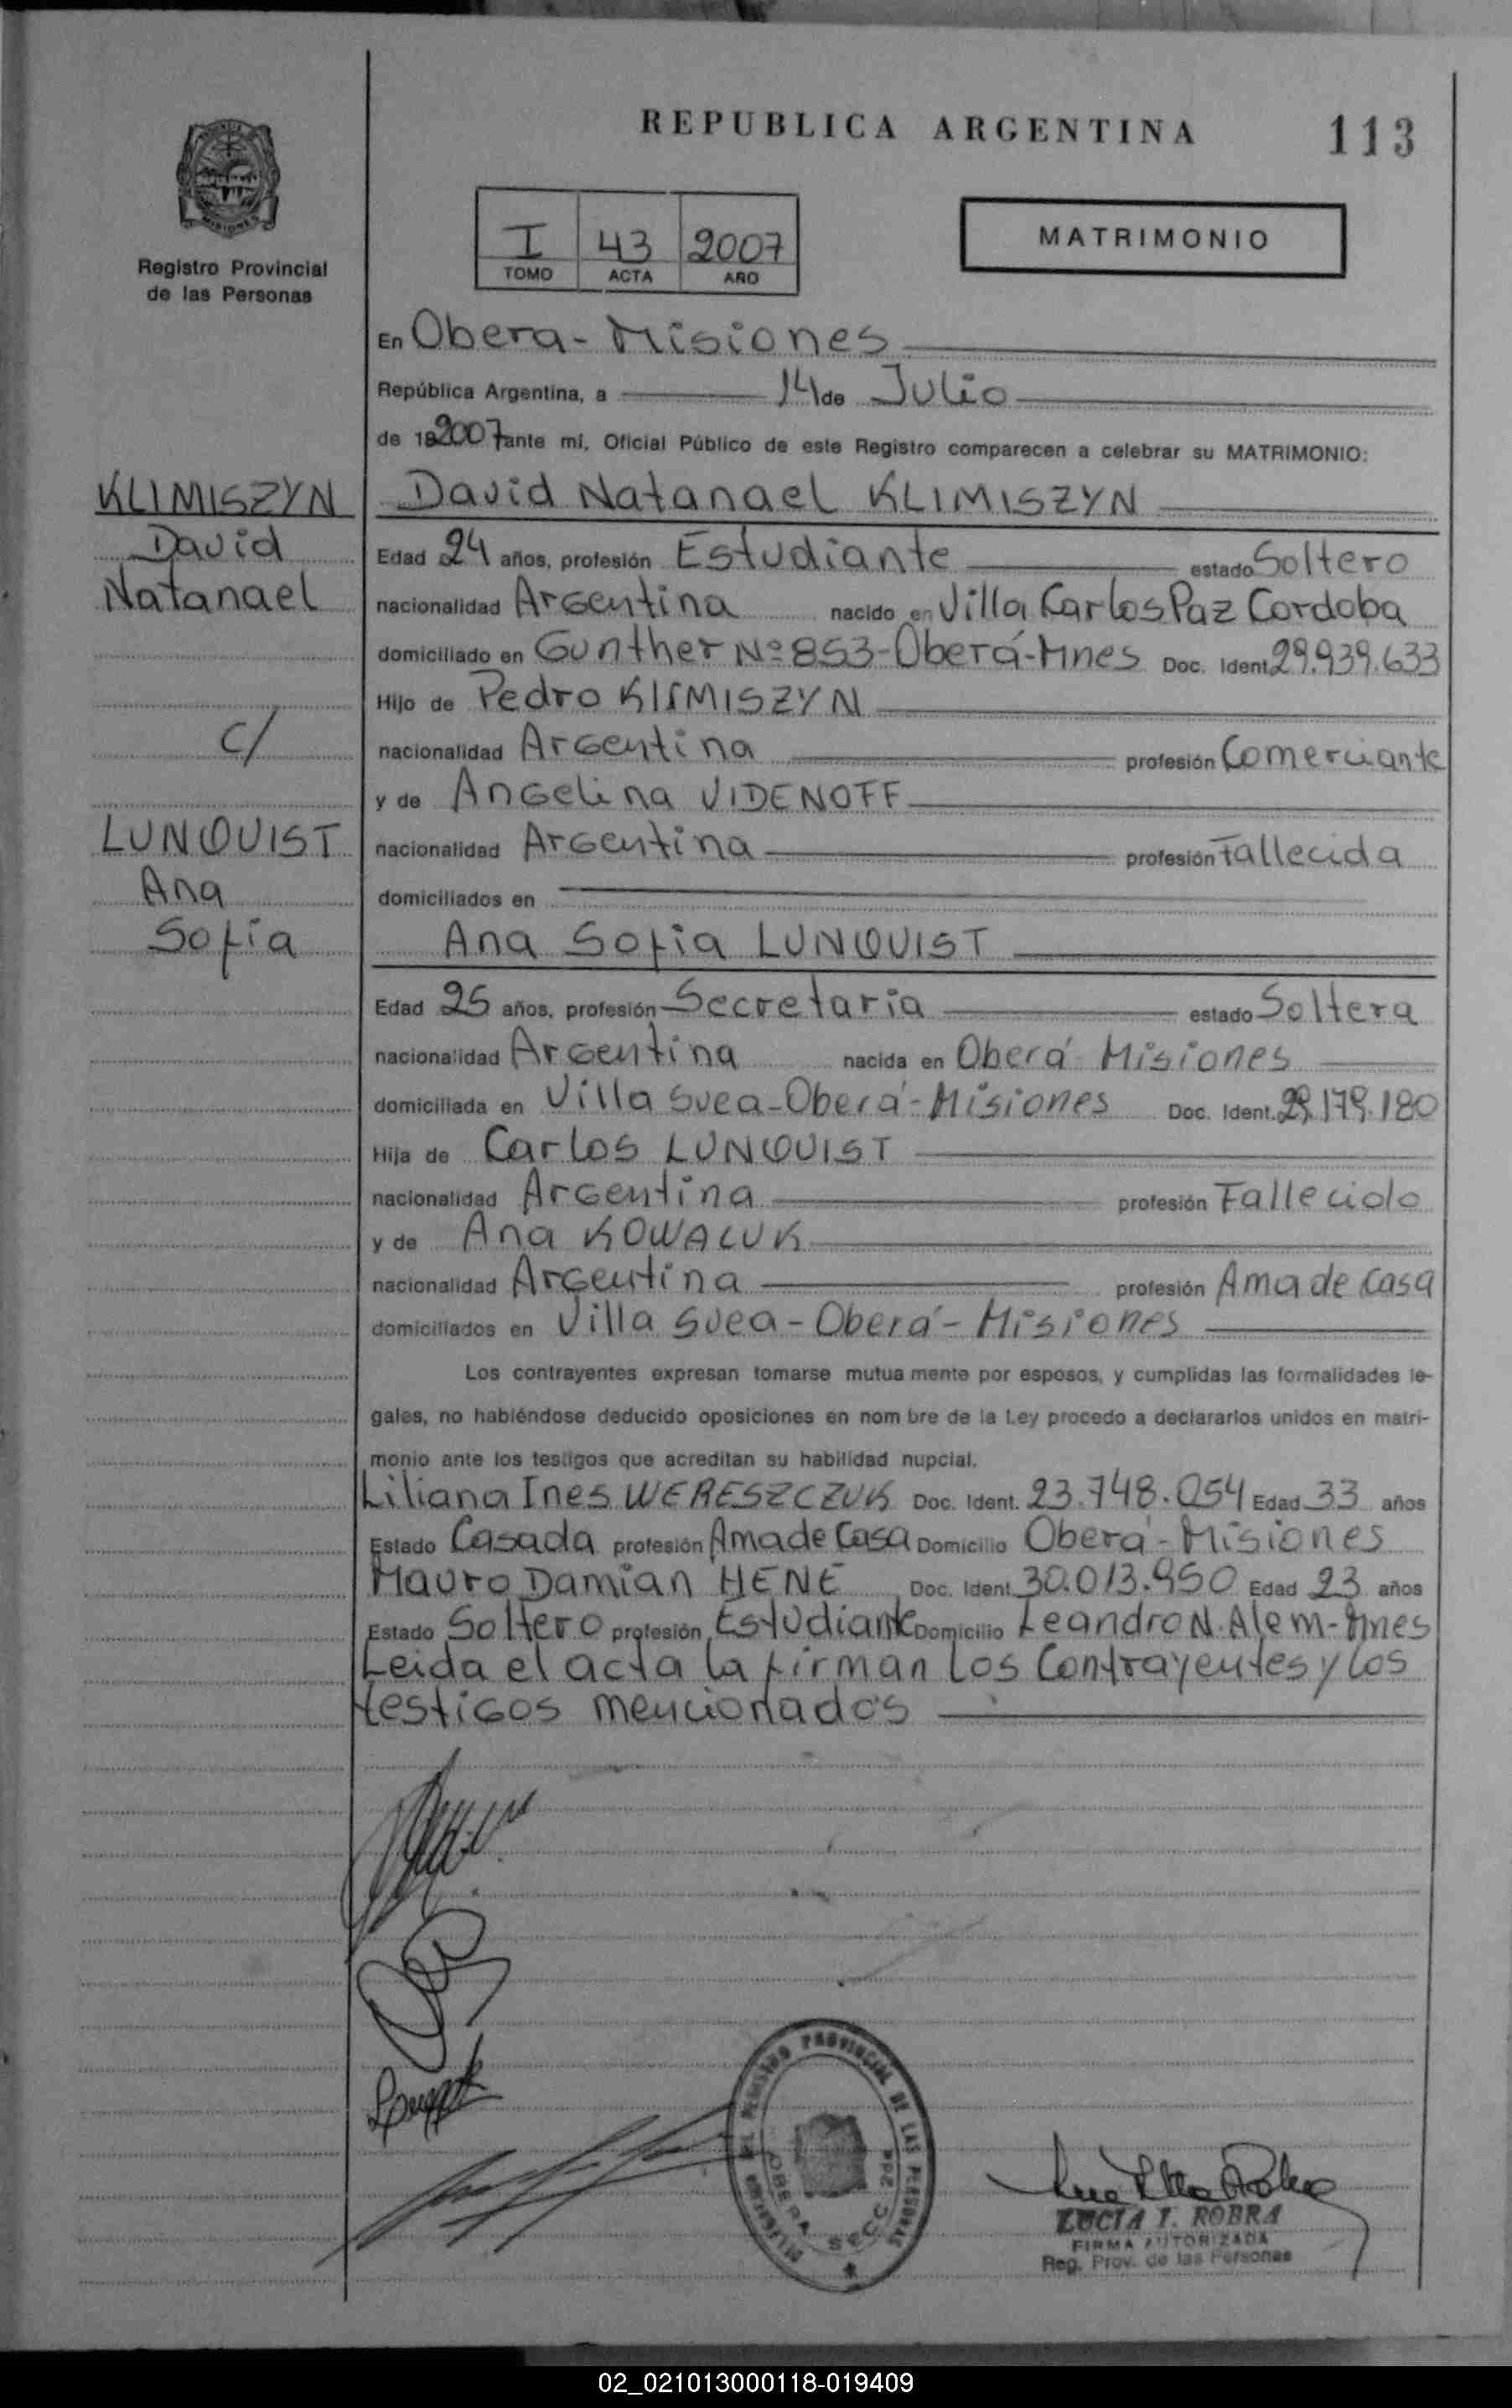 REPUBLICA ARGENTINA
113
Registro Provincial
de las Personas
I 43 2007
TOMO ACTA AÑO
MATRIMONIO
En Obera - Misiones
República Argentina, a 14 de Julio
de 192007 ante mí, Oficial Público de este Registro comparecen a celebrar su MATRIMONIO:
KLIMISZYN
David
Natanael
C/
LUNQUIST
Ana
Sofia
David Natanael KLIMISZYN
Edad 24 años, profesión Estudiante estado Soltero
nacionalidad Argentina nacido en Villa Carlos Paz Cordoba
domiciliado en Gunther Nº 853-Oberá-Mnes Doc. Ident. 29.939.633
Hijo de Pedro KLIMISZYN
nacionalidad Argentina profesión Comerciante
y de Angelina VIDENOFF
nacionalidad Argentina profesión Fallecida
domiciliados en
Ana Sofia LUNQUIST
Edad 25 años, profesión Secretaria estado Soltera
nacionalidad Argentina nacida en Oberá Misiones
domiciliada en Villa Svea-Oberá-Misiones Doc. Ident. 29.179.180
Hija de Carlos LUNQUIST
nacionalidad Argentina profesión Fallecido
y de Ana KOWALUK
nacionalidad Argentina profesión Ama de Casa
domiciliados en Villa Svea - Oberá - Misiones
Los contrayentes expresan tomarse mutua mente por esposos, y cumplidas las formalidades le-
gales, no habiéndose deducido oposiciones en nom bre de la Ley procedo a declararlos unidos en matri-
monio ante los testigos que acreditan su habilidad nupcial.
Liliana Ines WERESZCZUK Doc. Ident. 23.748.054 Edad 33 años
Estado Casada profesión Ama de Casa Domicilio Oberá - Misiones
Mauro Damian HENE Doc. Ident. 30.013.950 Edad 23 años
Estado Soltero profesión Estudiante Domicilio Leandro N. Alem-Mnes
Leida el acta la firman los Contrayentes y los
testigos mencionados
REGISTRO PROVINCIAL DE LAS PERSONAS
MISIONES
OBERA SECC 2da
LUCIA T. ROBRA
FIRMA AUTORIZADA
Reg. Prov. de las Personas
02_021013000118-019409